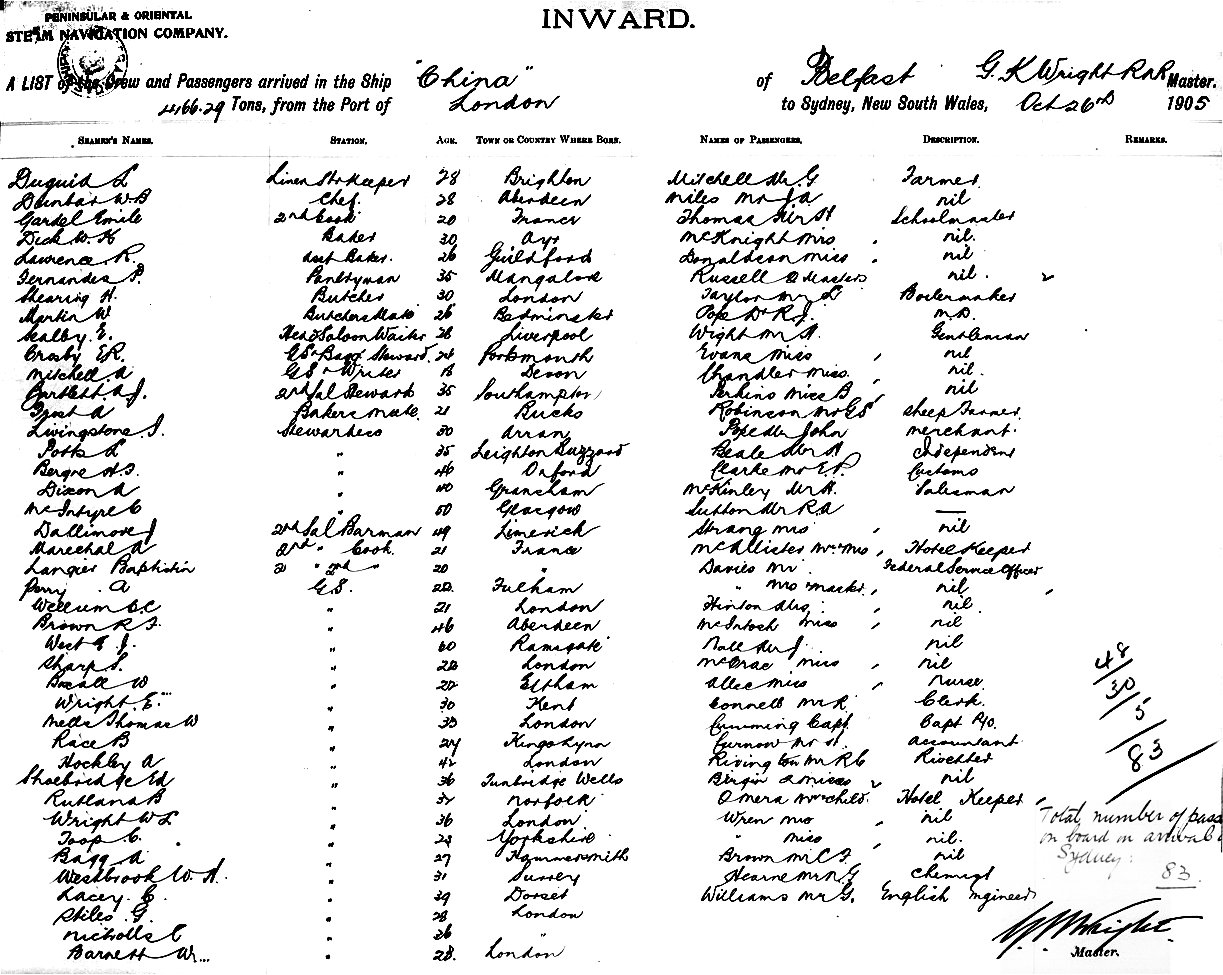 PENINSULAR & ORIENTAL
STEAM NAVIGATION COMPANY.
INWARD.
A LIST of the Crew and Passengers arrived in the Ship "China" of Belfast G. K Wright RNR Master.
4166.29 Tons, from the Port of London to Sydney, New South Wales, Oct 26th 1905
SEAMEN'S NAMES. STATION. AGE. TOWN OR COUNTRY WHERE BORN. NAMES OF PASSENGERS. DESCRIPTION. REMARKS.
Duguid L Linen Storekeeper 28 Brighton Mitchell Mr G Farmer
Dunbar W B Chef 28 Aberdeen Miles Mr J A nil
Gardel Emile 2nd Cook 20 France Thomas Mr St Schoolmaster
Dick W. K Baker 30 Ayr McKnight Mrs , nil.
Lawrence R. Asst Baker. 26 Guildford Donaldson Miss , nil
Fernandes P. Pantryman 35 Mangalore Russell 2 Masters nil.
Shearing H. Butcher 30 London Taylor Mr L Boilermaker
Martin W Butchers Mate 26 Bedminster Pope Dr R. J. M.D.
Sealby E. Head Saloon Waiter 28 Liverpool Wright Mr A. Gentleman
Crosby E.R. GS & Bagg Steward. 24 Portsmouth Evans Miss , nil
Mitchell A GS & Writer 18 Devon Chandler Miss , nil.
Bartlett A J. 2nd Sal Steward 35 Southampton Perkins Miss B , nil
Frost A Bakers Mate 21 Bucks Robinson Mr E S Sheep Farmer
Livingstone J. Stewardess 30 Arran Pope Mr John Merchant.
Potts L " 35 Leighton Buzzard Beale Mr A Independent
Bergre H.S. " 46 Oxford Clarke Mr E. P. Customs
Dixon A " 40 Grancham McKinley Mr H. Salesman
McIntyre C " 50 Glasgow Sutton Mr R.A —
Dallimore J 2nd Sal Barman 49 Limerick Strang Mrs , nil
Marechal A 2nd " Cook. 21 France McAllister Mr & Mrs , Hotel Keeper
Langier Baptistin 2 " 2nd " 20 " Davies Mr Federal Service Officer
Perry A G.S. 22 Fulham " Mrs , nil ,
Wellum A.C " 21 London Hinton Mrs , nil.
Brown R. F. " 46 Aberdeen McIntosh Miss , nil
West E J. " 60 Ramsgate Nall Mr J nil
Sharp S. " 22 London McCrae Miss , nil
Bacall W " 22 Eltham Allec Miss , Nurse
Wright E. " 30 Kent Connell Mr R. Clerk.
Mells Thomas W " 33 London Cumming Capt. Capt P/O.
Race B " 24 Kings Lynn Curnow Mr H. Accountant
Hockley A " 42 London Rivington Mr R C
Shoebridge Ed " 36 Tunbridge Wells Birgin 2 Misses nil
Rutland B " 32 Norfolk Omera Mr & child. Hotel Keeper ,
Wright W L " 36 London Wren Mrs , nil
Toop C. " 28 Yorkshire " Miss , nil.
Bagg A " 27 Hammersmith Brown Mr C F. nil
Westbrook W. H. " 31 Surrey Hearne Mr N G Chemist
Lacey C. " 39 Dorset Williams Mr G. English Engineer
Stiles G. " 28 London
Nicholls C " 26 "
Barnett W... " 28. London
48/
30/
5/
83
Total number of pass
on board on arrival
Sydney:
83.
G K Wright.
Master.